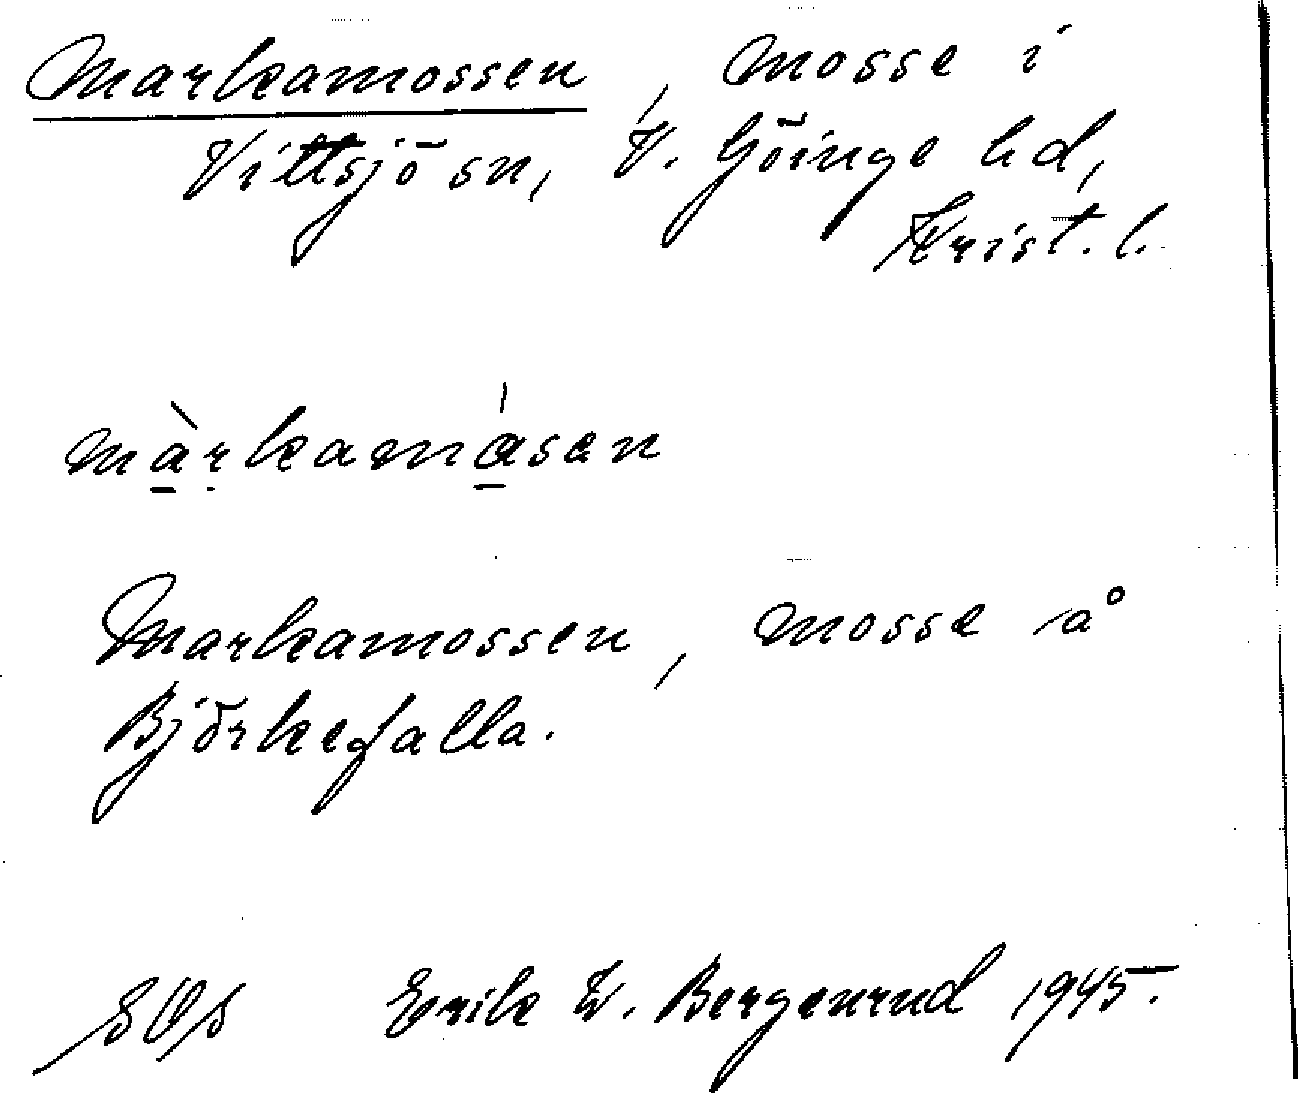 Markamossen, mosse i
Vittsjö sn, V. Göinge hd,
Krist. l.
màrkamásen
Markamossen, mosse å
Björkefalla.
SOS Erik W. Bergenrud 1945.